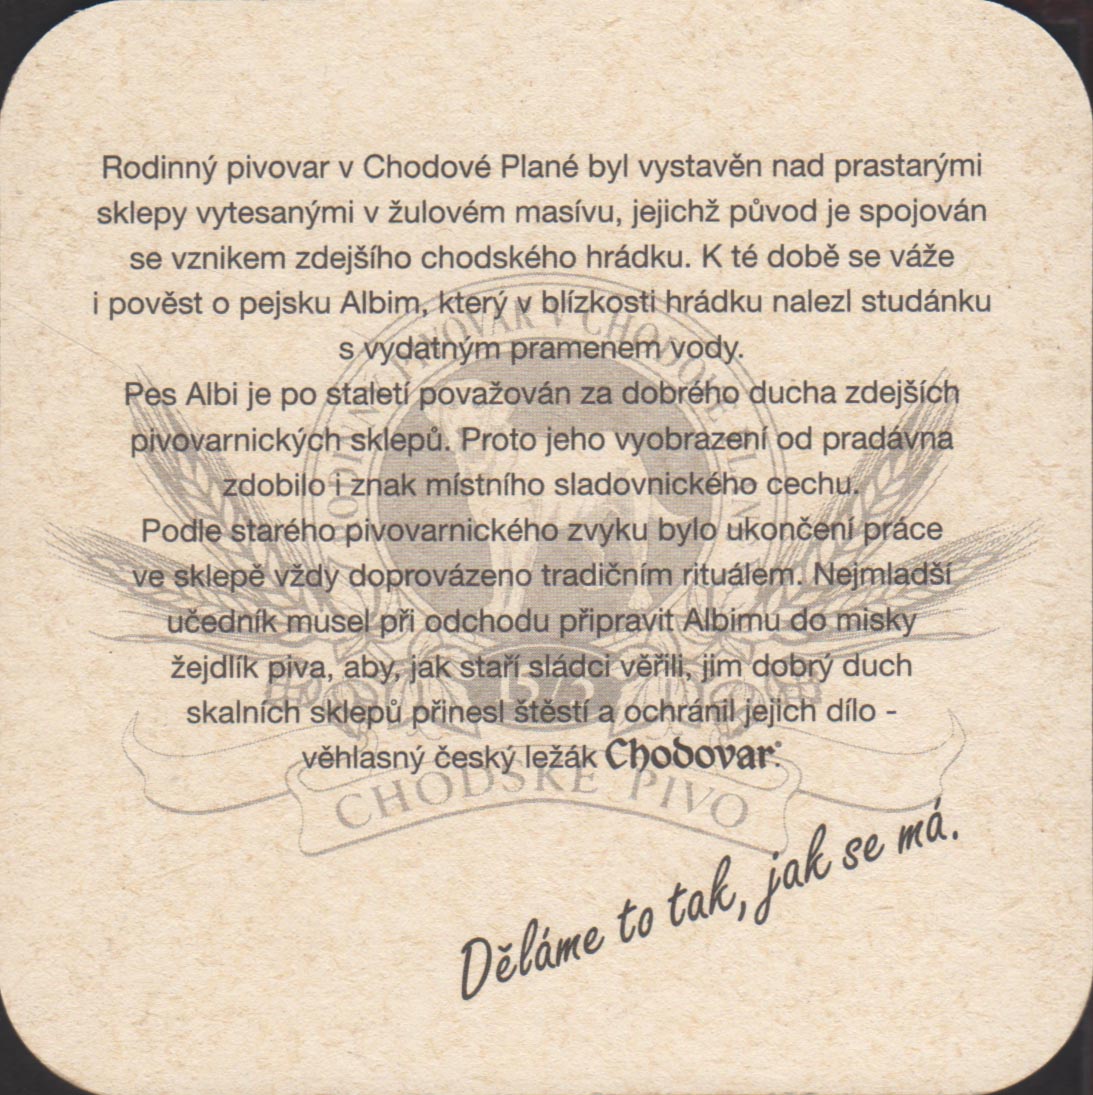 Rodinný pivovar v Chodové Plané byl vystavěn nad prastarými
sklepy vytesanými v žulovém masívu, jejichž původ je spojován
se vznikem zdejšího chodského hrádku. K té době se váže
i pověst o pejsku Albim, který v blízkosti hrádku nalezl studánku
s vydatným pramenem vody.
Pes Albi je po staletí považován za dobrého ducha zdejších
pivovarnických sklepů. Proto jeho vyobrazení od pradávna
zdobilo i znak místního sladovnického cechu.
Podle starého pivovarnického zvyku bylo ukončení práce
ve sklepě vždy doprovázeno tradičním rituálem. Nejmladší
učedník musel při odchodu připravit Albimu do misky
žejdlík piva, aby, jak staří sládci věřili, jim dobrý duch
skalních sklepů přinesl štěstí a ochránil jejich dílo -
věhlasný český ležák Chodovar®.
RODINNÝ PIVOVAR V CHODOVÉ PLANÉ
1573
CHODSKÉ PIVO
Děláme to tak, jak se má.